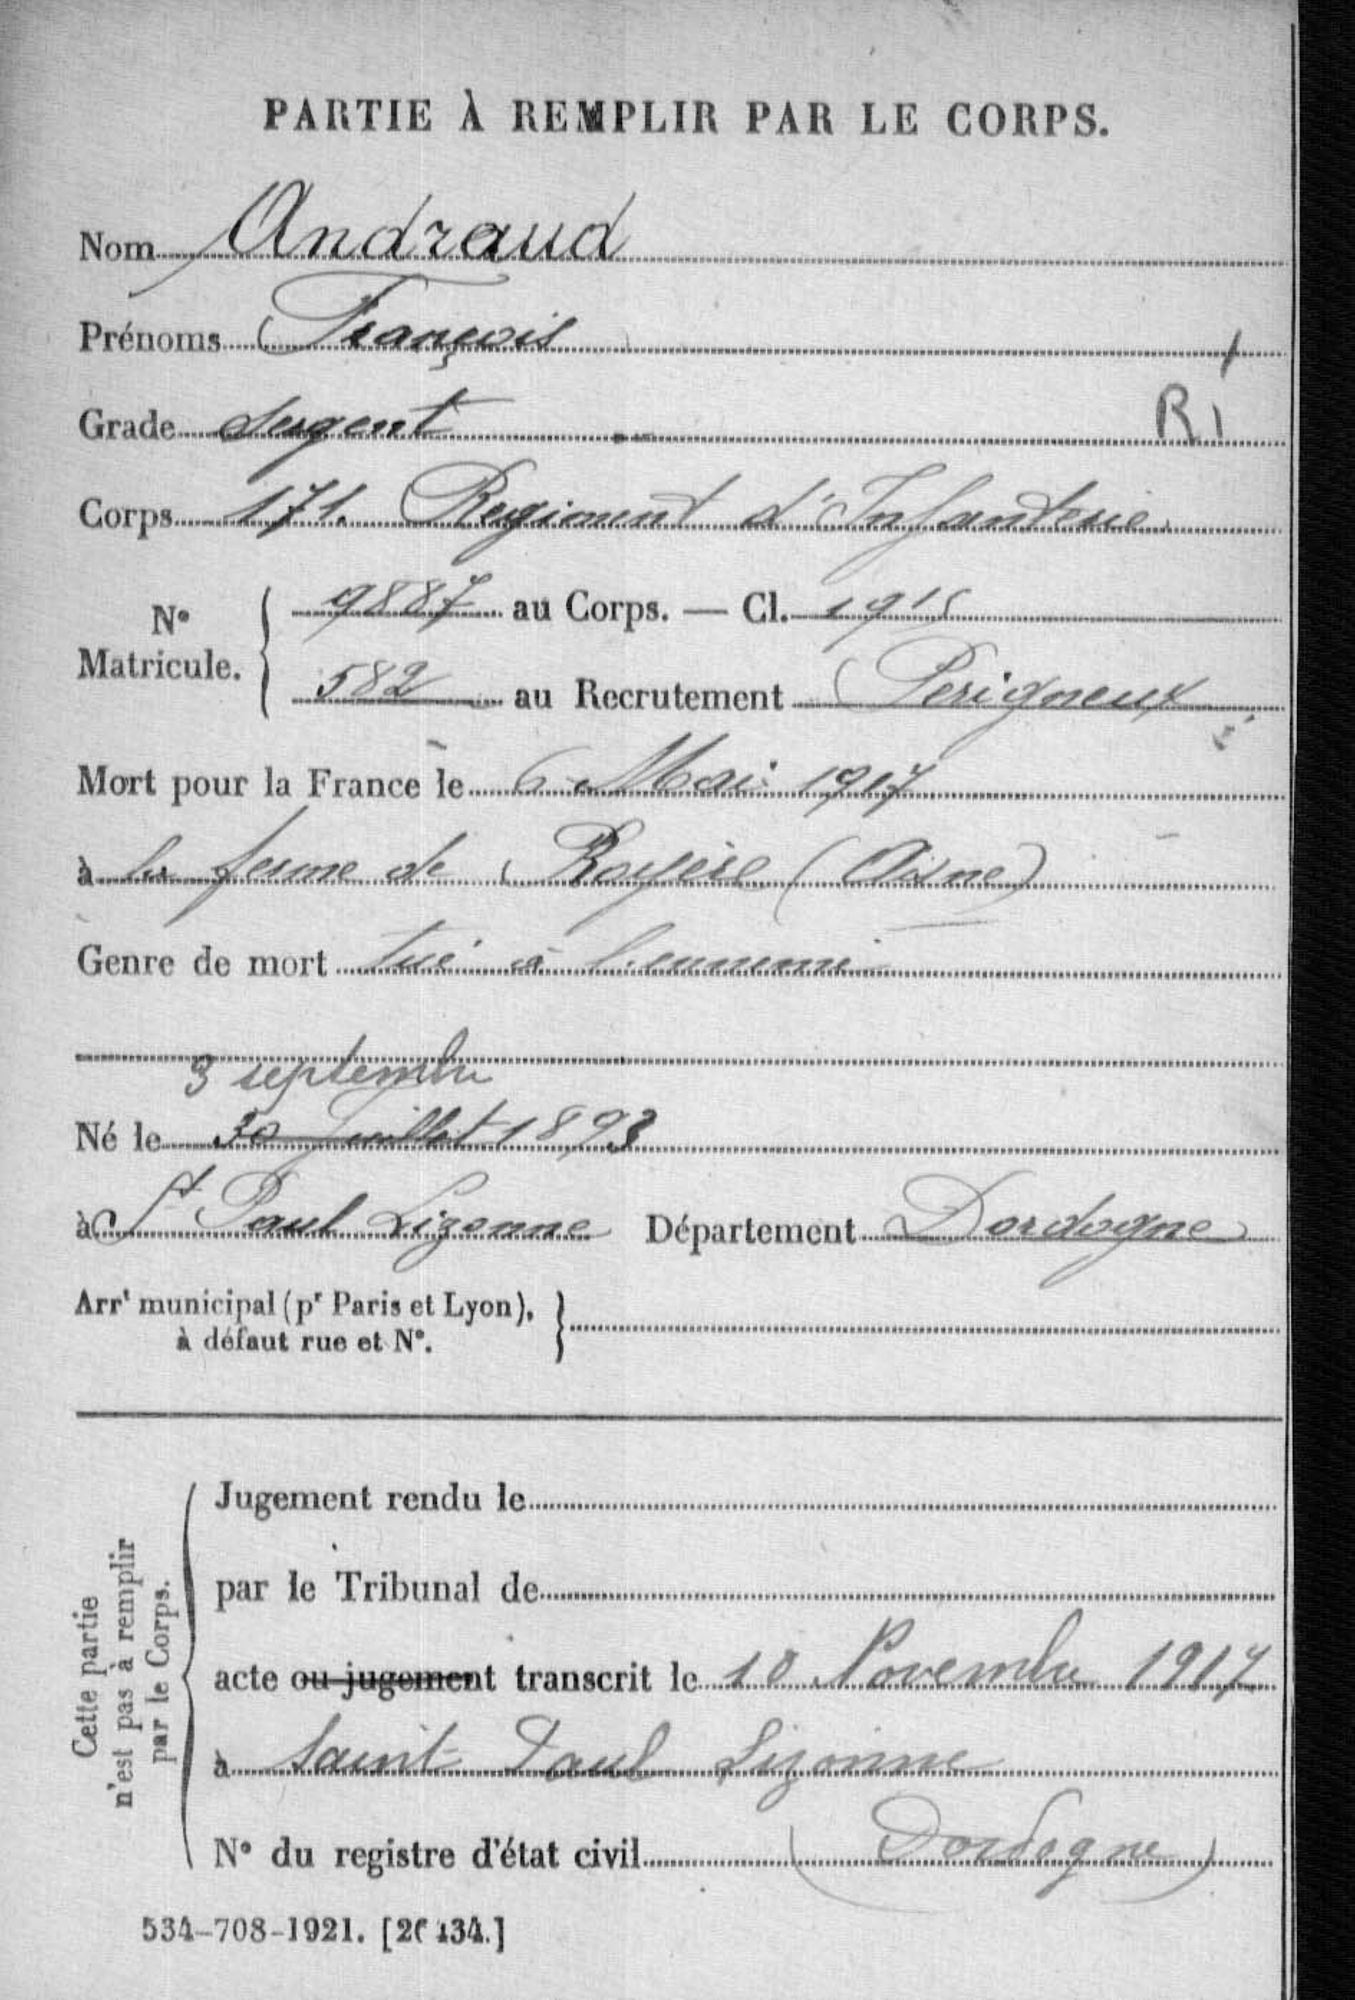 PARTIE À REMPLIR PAR LE CORPS.
Nom Andraud
Prénoms François
Grade Sergent
R1
Corps 171. Regiment d'Infanterie
N° Matricule. 9887 au Corps. — Cl. 1915
582 au Recrutement Perigueux
Mort pour la France le 6 Mai 1917
à la ferme de Royère (Aisne)
Genre de mort tué à l'ennemi
3 septembre
Né le 30 Juillet 1893
à St Paul Lizonne Département Dordogne
Arrt municipal (pr Paris et Lyon),
à défaut rue et N°.
Cette partie
n'est pas à remplir
par le Corps.
Jugement rendu le
par le Tribunal de
acte ou jugement transcrit le 10 Novembre 1917
à Saint Paul Lizonne
N° du registre d'état civil (Dordogne)
534-708-1921. [26434.]